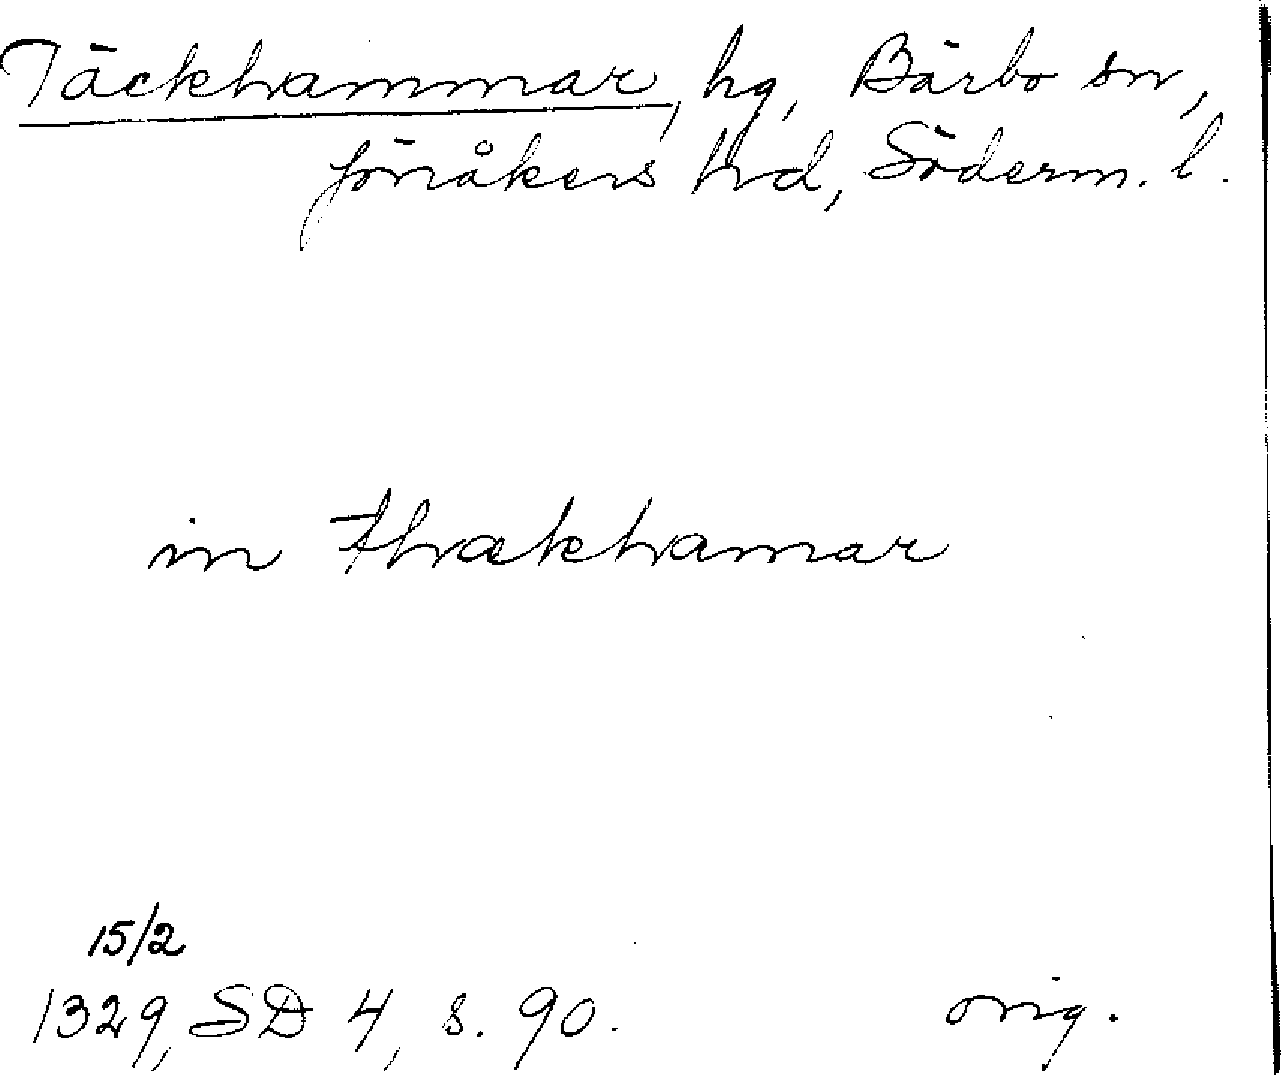 Täckhammar, hg, Bärbo sn,
Jönåkers hd, Söderm. l.
in thækhamar
15/2
1329, SD 4, s. 90. orig.